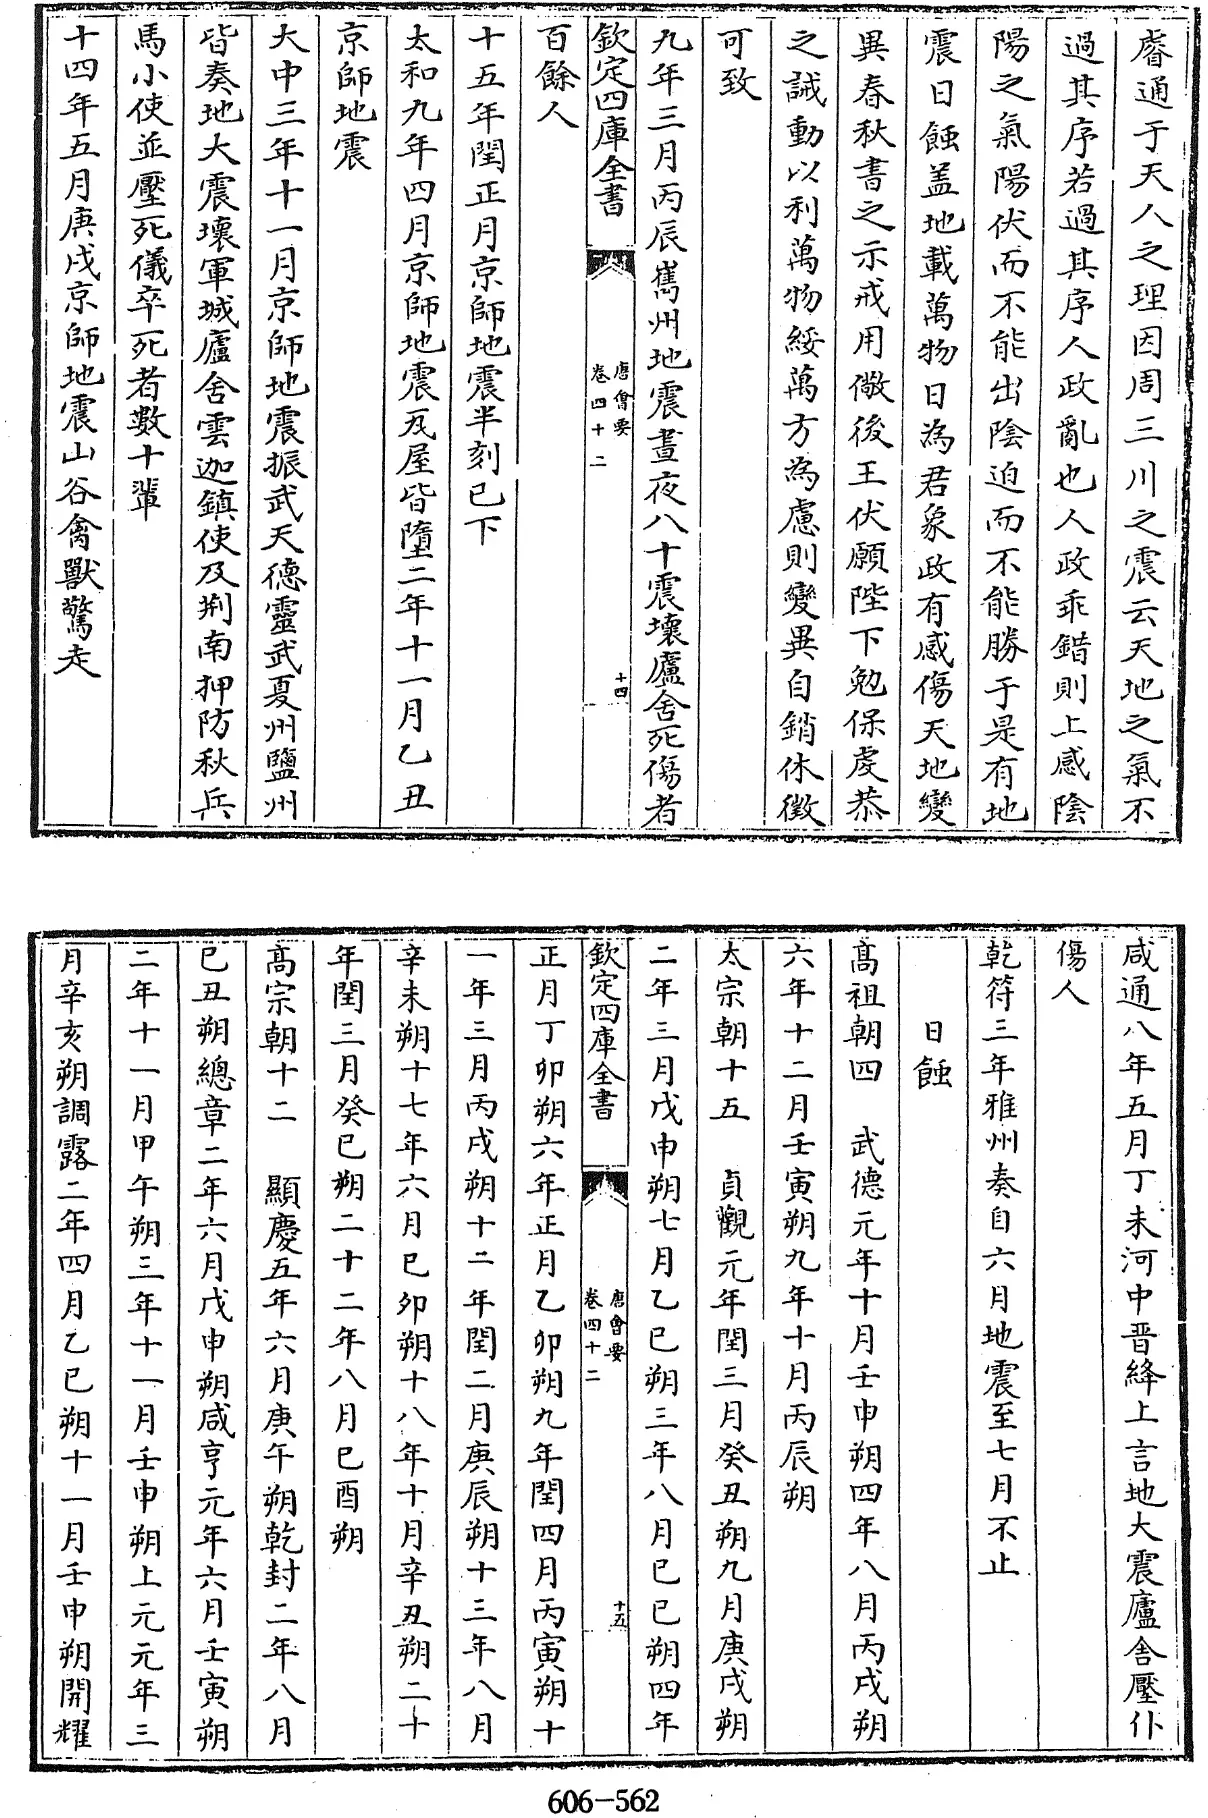 睿通于天人之理因周三川之震云天地之氣不
過其序若過其序人政亂也人政乖錯則上感陰
陽之氣陽伏而不能出陰迫而不能勝于是有地
震日蝕盖地載萬物日為君象政有感傷天地變
異春秋書之示戒用儆後王伏願陛下勉保虔恭
之誠動以利萬物綏萬方為慮則變異自銷休徵
可致
九年三月丙辰嶲州地震晝夜八十震壞廬舍死傷者
欽定四庫全書
唐會要
卷四十二
十四
百餘人
十五年閏正月京師地震半刻已下
太和九年四月京師地震瓦屋皆墮二年十一月乙丑
京師地震
大中三年十一月京師地震振武天德靈武夏州鹽州
皆奏地大震壞軍城廬舍雲迦鎮使及荆南押防秋兵
馬小使並壓死儀卒死者數十輩
十四年五月庚戌京師地震山谷禽獸驚走
咸通八年五月丁未河中晋絳上言地大震廬舍壓仆
傷人
乾符三年雅州奏自六月地震至七月不止
日蝕
髙祖朝四 武德元年十月壬申朔四年八月丙戌朔
六年十二月壬寅朔九年十月丙辰朔
太宗朝十五 貞觀元年閏三月癸丑朔九月庚戌朔
二年三月戊申朔七月乙巳朔三年八月己巳朔四年
欽定四庫全書
唐會要
卷四十二
十五
正月丁卯朔六年正月乙卯朔九年閏四月丙寅朔十
一年三月丙戌朔十二年閏二月庚辰朔十三年八月
辛未朔十七年六月己卯朔十八年十月辛丑朔二十
年閏三月癸巳朔二十二年八月己酉朔
髙宗朝十二 顯慶五年六月庚午朔乾封二年八月
己丑朔總章二年六月戊申朔咸亨元年六月壬寅朔
二年十一月甲午朔三年十一月壬申朔上元元年三
月辛亥朔調露二年四月乙巳朔十一月壬申朔開耀
606-562